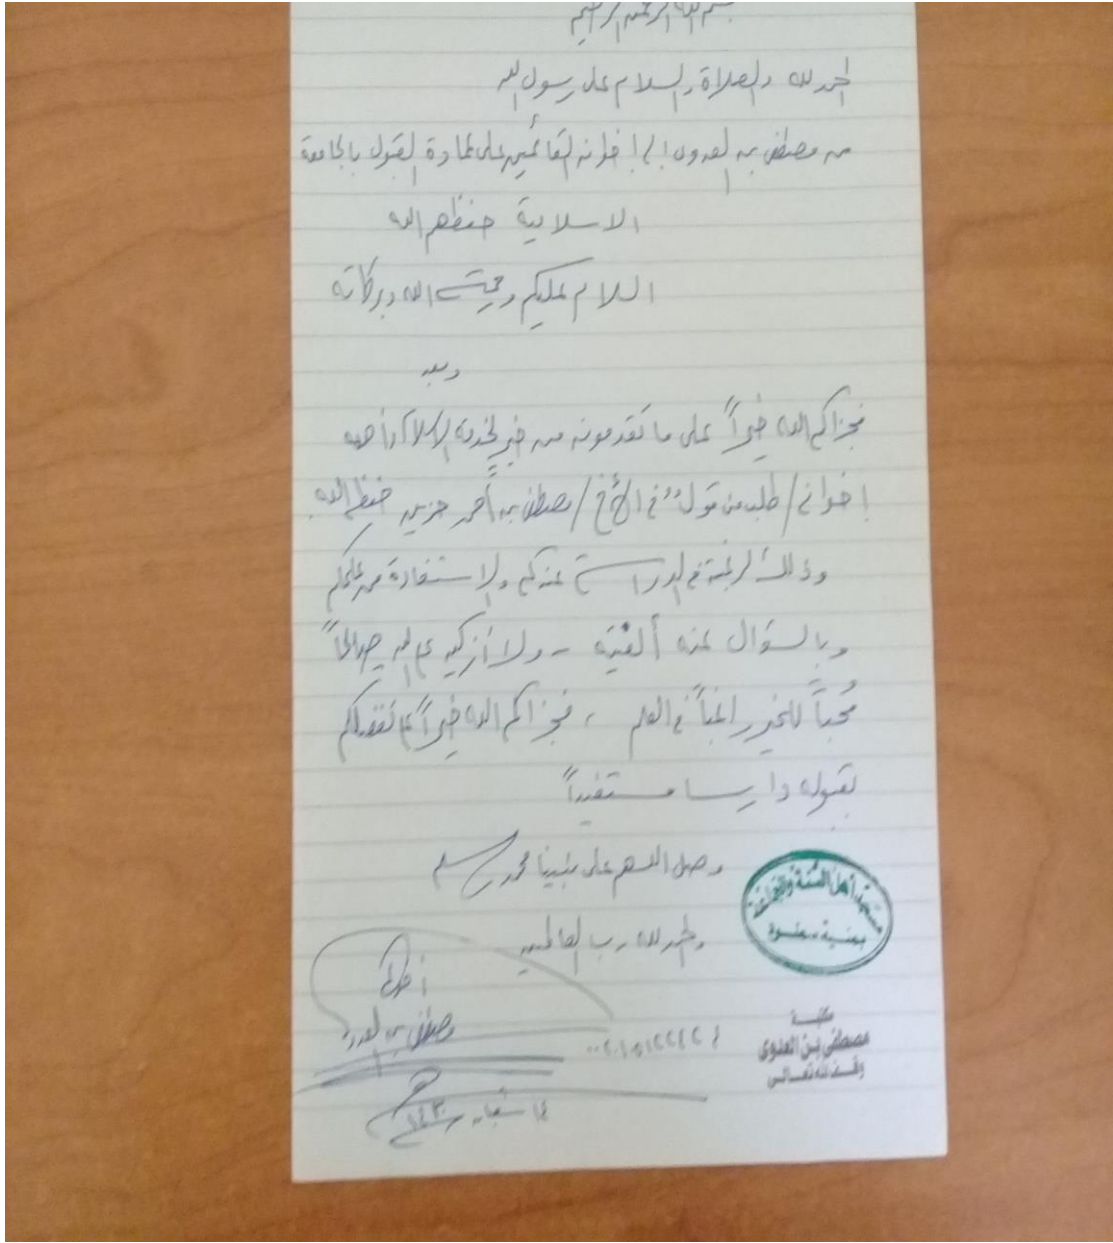 بسم الله الرحمن الرحيم
الحمد لله والصلاة والسلام على رسول الله
من مصطفى بن العدوي إلى إخوانه القائمين على عمادة القبول بالجامعة
الاسلامية حفظهم الله
السلام عليكم ورحمة الله وبركاته
وبعد
فجزاكم الله خيراً على ما تقدمونه من خير لخدمة الإسلام وأهله
إخواني / طلب مني الأخ / مصطفى بن أحمد حفظه الله
وذلك لرغبته في الدراسة عندكم والاستفادة من علمكم
وبالسؤال عنه ألفيته - ولا أزكيه على الله صالحاً
مُحباً للخير راغباً في العلم ، فجزاكم الله خيراً على تفضلكم
بقبوله دارسا مستفيداً
وصل اللهم على نبينا محمد وسلم
والحمد لله رب العالمين
مسجد أهل السنة والجماعة
بمنية سمنود
أخوكم
مصطفى بن العدوي
مكتبة
مصطفى بن العدوي
وقف لله تعالى
١٤ شعبان ١٤٣٠